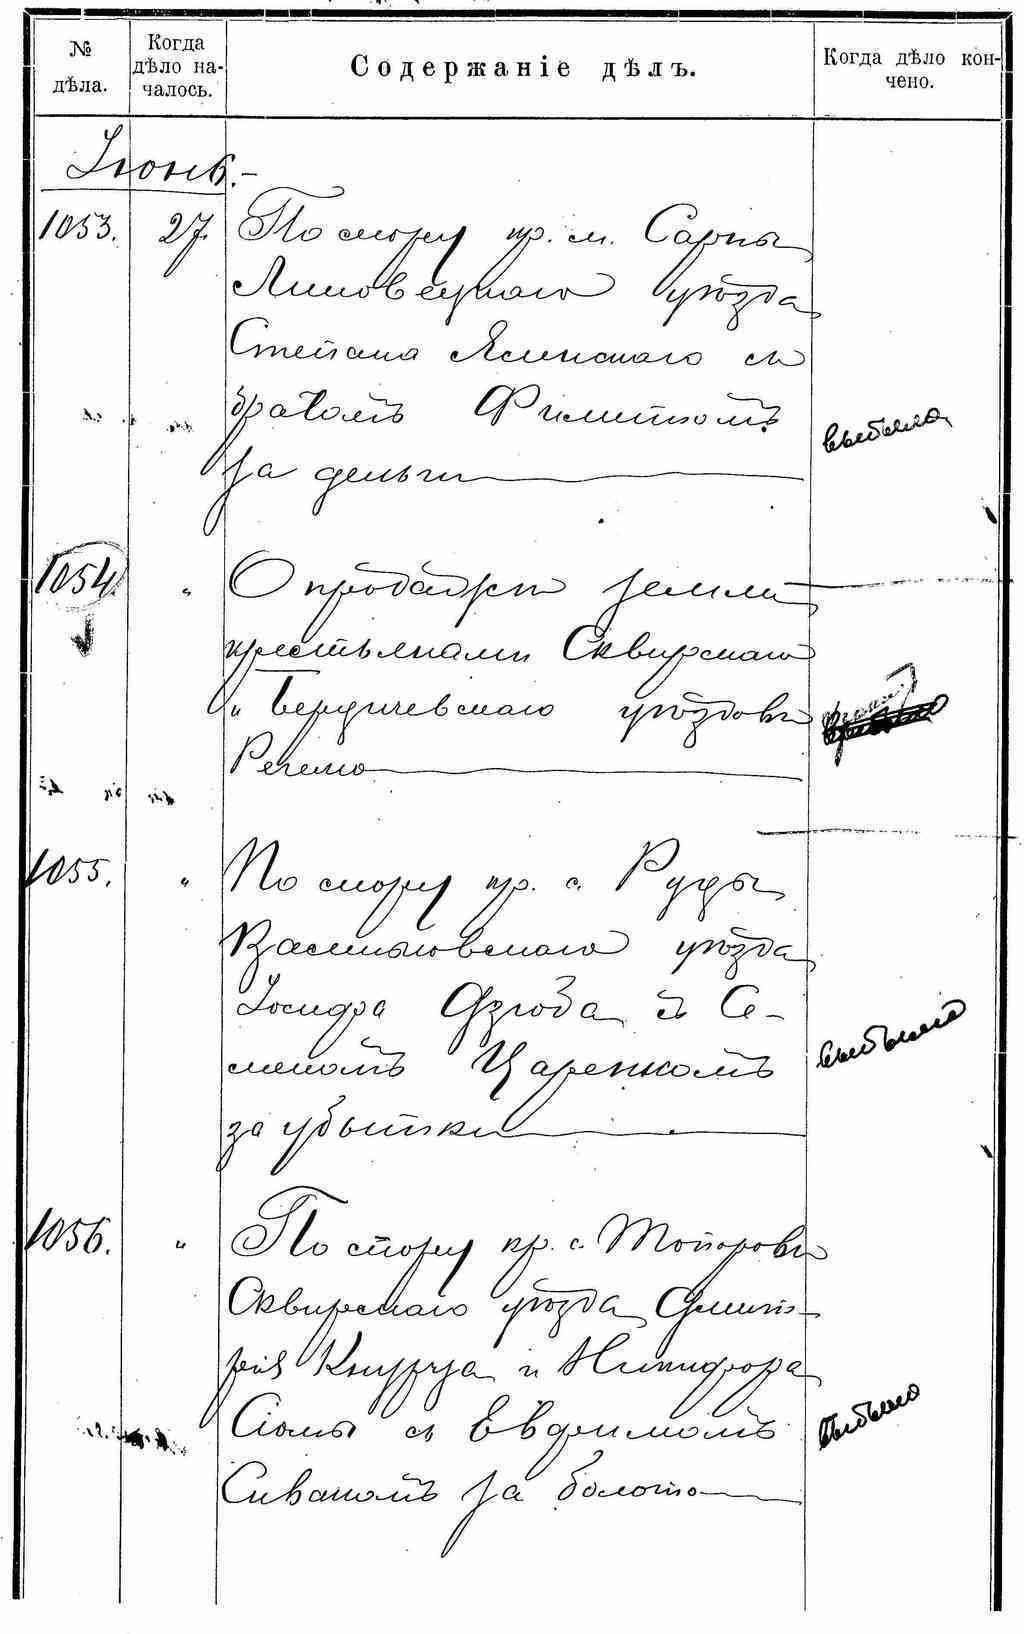 № дѣла.
Когда дѣло началось.
Содержаніе дѣлъ.
Когда дѣло кончено.
Іюнь.-
1053. 27. По спору пр. м. Сарны
Липовецкаго уѣзда
Степана Ясинскаго съ
братомъ Филипомъ
за деньги
выбыла
1054. " О продажѣ земли
крестьянами Сквирскаго
и Бердичевскаго уѣздовъ
1055. " По спору пр. с. Руды
Васильковскаго уѣзда
Іосифа Дзюба съ Се-
меномъ Царенкомъ
за убытки
выбыло
1056. " По спору кр. с. Топоровъ
Сквирскаго уѣзда Дмит-
рія и Никифора
съ Евфимомъ
Сиваномъ за болото
выбыло